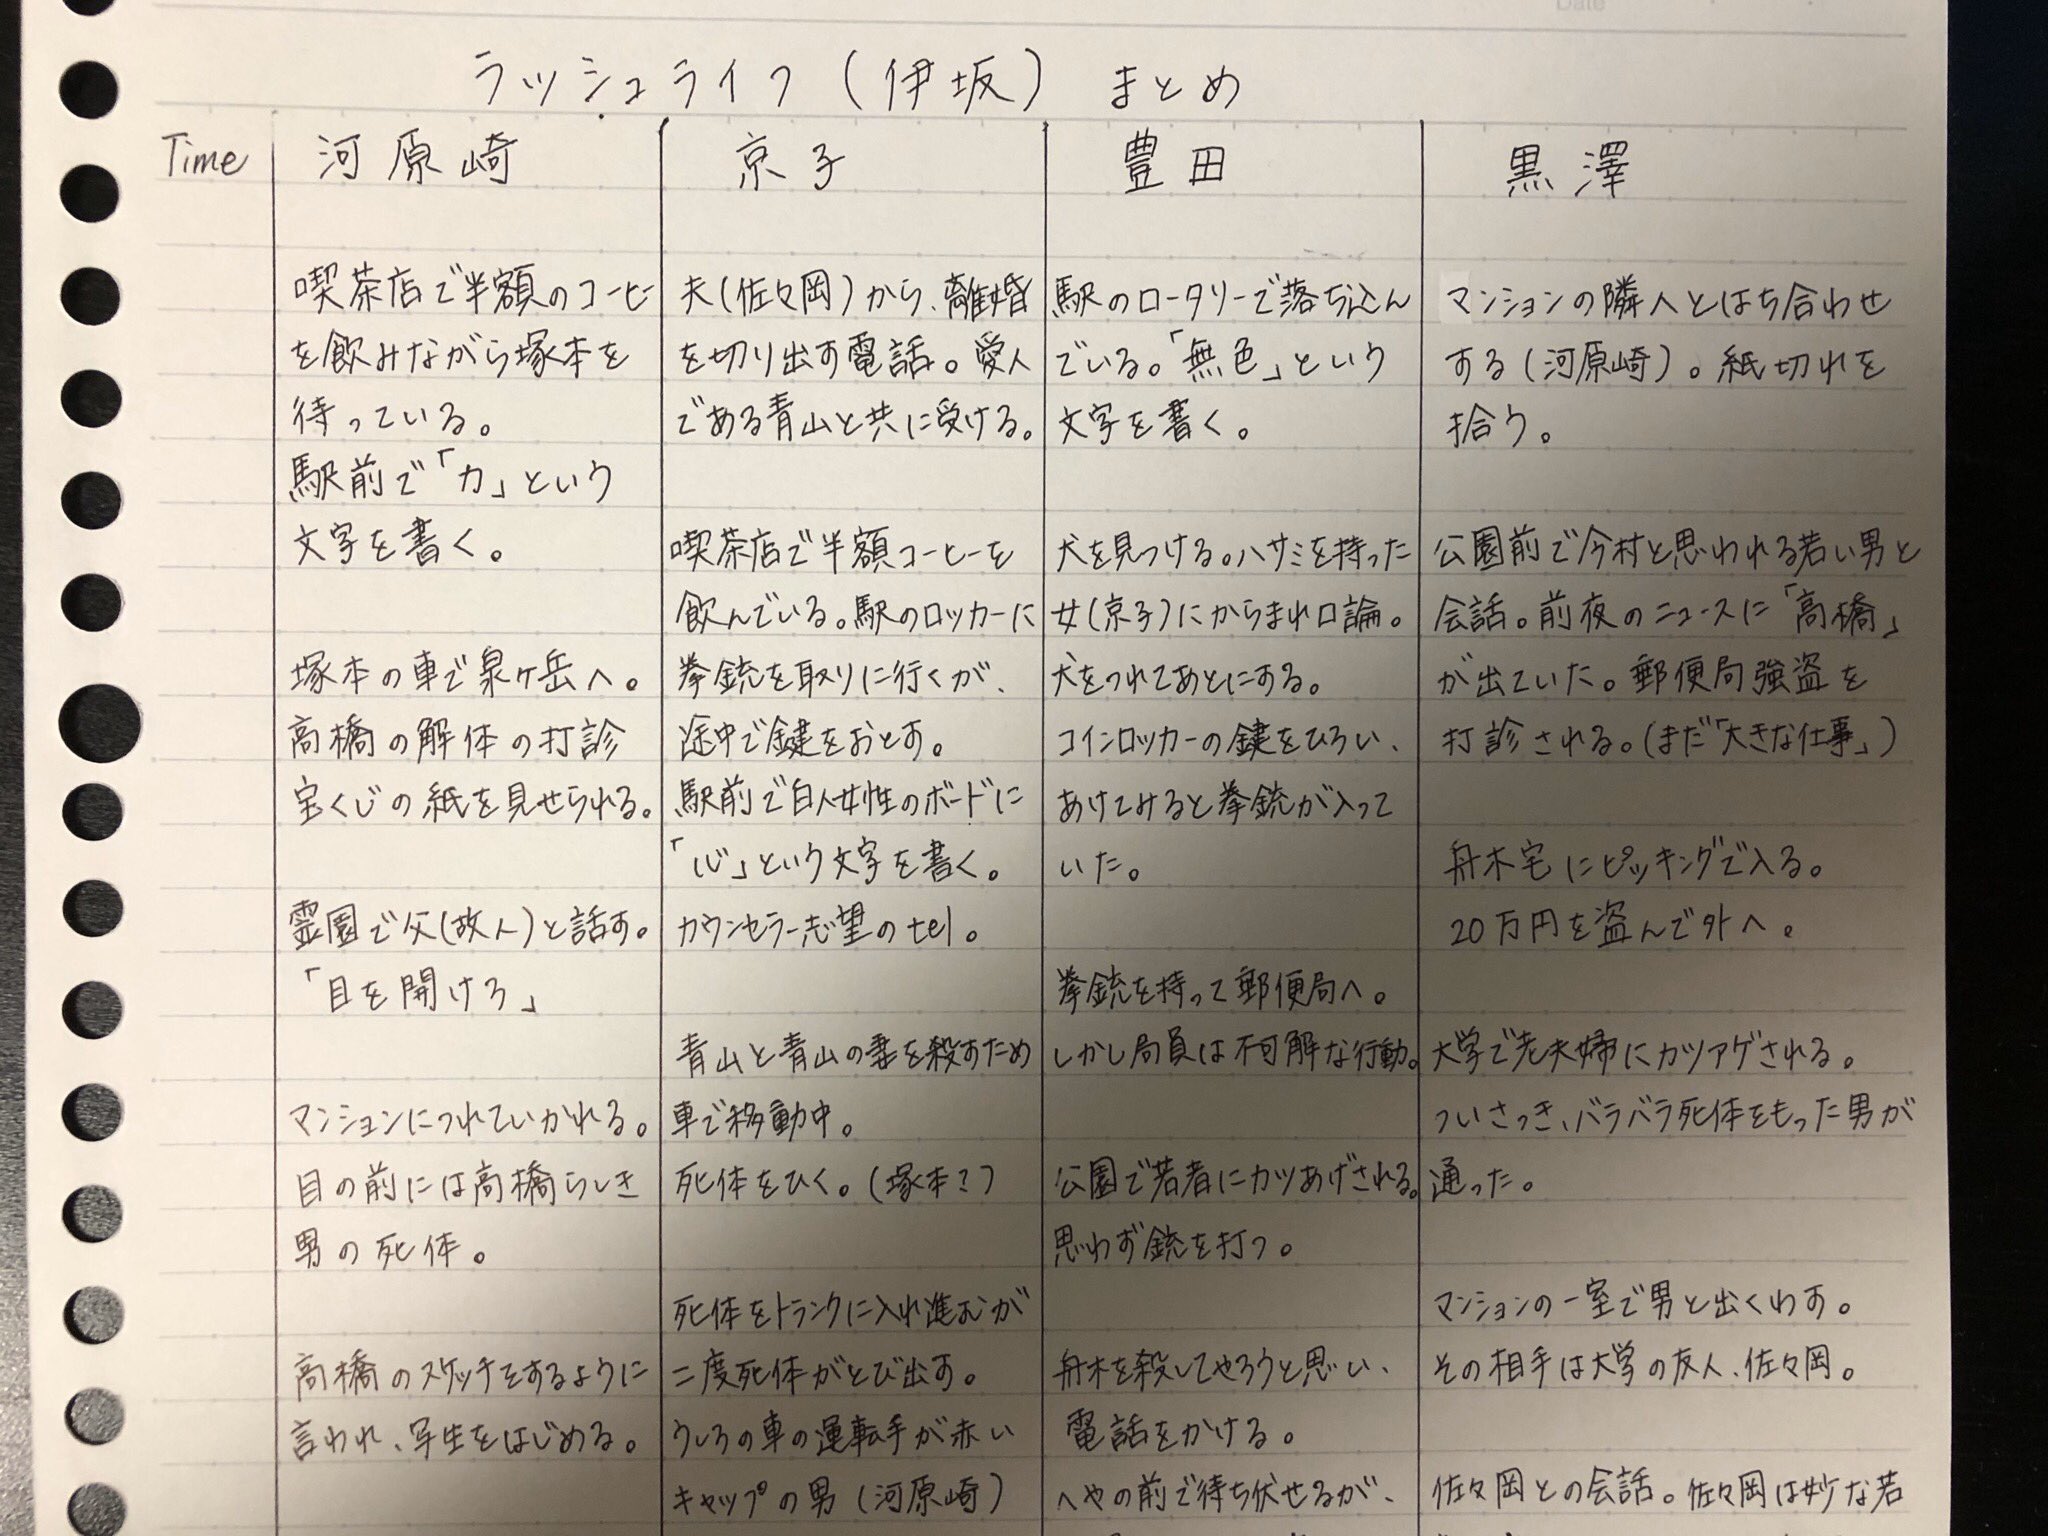 Date
ラッシュライフ(伊坂) まとめ
Time
河原崎
喫茶店で半額のコーヒー
を飲みながら塚本を
待っている。
駅前で「力」という
文字を書く。
塚本の車で泉ヶ岳へ。
高橋の解体の打診
宝くじの紙を見せられる。
霊園で父(故人)と話す。
「目を開けろ」
マンションにつれていかれる。
目の前には高橋らしき
男の死体。
高橋のスケッチをするように
言われ、写生をはじめる。
京子
夫(佐々岡)から、離婚
を切り出す電話。愛人
である青山と共に受ける。
喫茶店で半額コーヒーを
飲んでいる。駅のロッカーに
拳銃を取りに行くが、
途中で鍵をおとす。
駅前で白人女性のボードに
「心」という文字を書く。
カウンセラー志望のtel。
青山と青山の妻を殺すため
車で移動中。
死体をひく。(塚本?)
死体をトランクに入れ進むが
二度死体がとび出す。
うしろの車の運転手が赤い
キャップの男(河原崎)
豊田
駅のロータリーで落ち込ん
でいる。「無色」という
文字を書く。
犬を見つける。ハサミを持った
女(京子)にからまれ口論。
犬をつれてあとにする。
コインロッカーの鍵をひろい、
あけてみると拳銃が入って
いた。
拳銃を持って郵便局へ。
しかし局員は不可解な行動。
公園で若者にカツあげされる。
思わず銃を打つ。
舟木を殺してやろうと思い、
電話をかける。
へやの前で待ち伏せるが、
黒澤
マンションの隣人とはち合わせ
する(河原崎)。紙切れを
拾う。
公園前で今村と思われる若い男と
会話。前夜のニュースに「高橋」
が出ていた。郵便局強盗を
打診される。(まだ「大きな仕事」)
舟木宅にピッキングで入る。
20万円を盗んで外へ。
大学で老夫婦にカツアゲされる。
ついさっき、バラバラ死体をもった男が
通った。
マンションの一室で男と出くわす。
その相手は大学の友人、佐々岡。
佐々岡との会話。佐々岡は妙な若